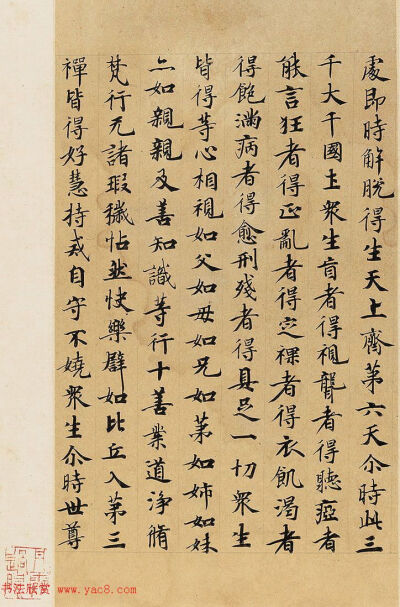 處即時解脫得生天上齊第六天尒時此三
千大千國土衆生盲者得視聾者得聽瘂者
能言狂者得正亂者得定裸者得衣飢渴者
得飽滿病者得愈刑殘者得具足一切衆生
皆得等心相視如父如母如兄如弟如姉如妹
亦如親親及善知識等行十善業道淨脩
梵行无諸瑕穢怗然快樂譬如比丘入第三
禪皆得好慧持戒自守不嬈衆生尒時世尊
书法欣赏 www.yac8.com